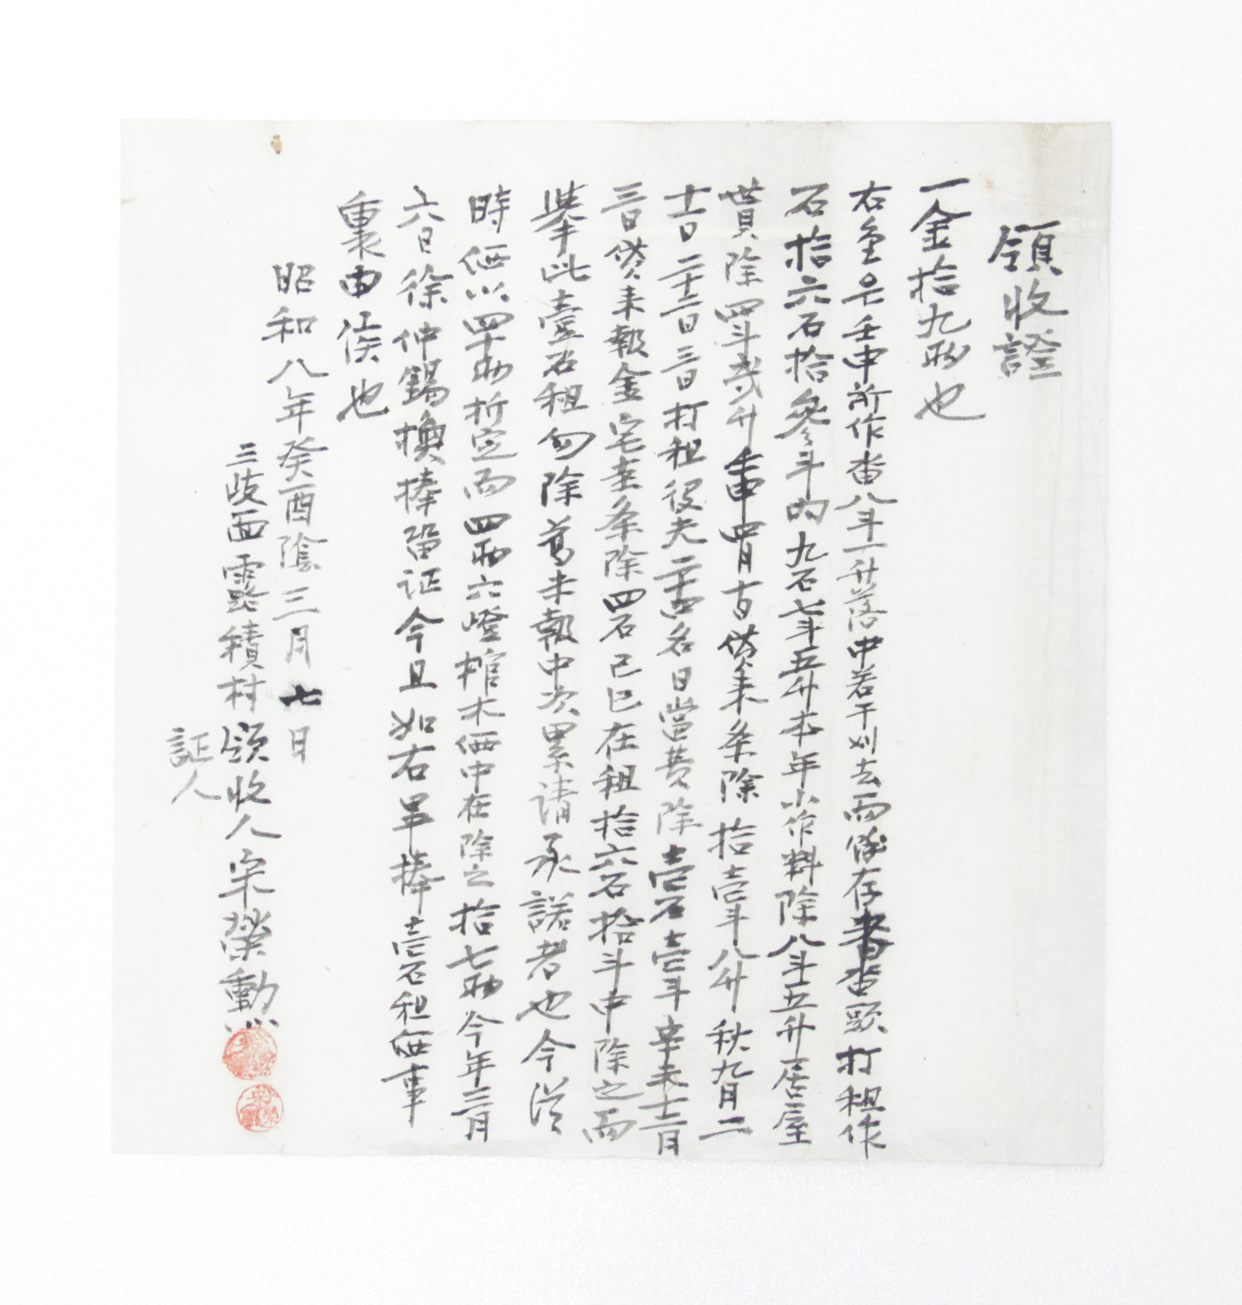 領收證
一金拾九兩也
右金은壬申所作畓八斗一升落中若干刈去而餘存者畓頭打租作
石拾六石拾參斗內九石七斗五升本年小作料除八斗五升居屋
貰除四斗貳升壬申四月十五日貸来条除拾壹斗八升秋九月二
十日二十二日三日打租役夫二十四名日當費除壹石壹斗辛未十二月
三日貸来報金宅圭条除四石己巳在租拾六石拾斗中除之而
擧此壹石租勿除萬未報中次累請承諾者也今從
時価以四十兩折定而四兩六燈棺木価中在除之拾七兩今年三月
六日徐仲錫換捧留証今且如右畢捧壹石租価事
裏由俟也
昭和八年癸酉陰三月七日
三岐面露積村領收人宋榮勳
証人